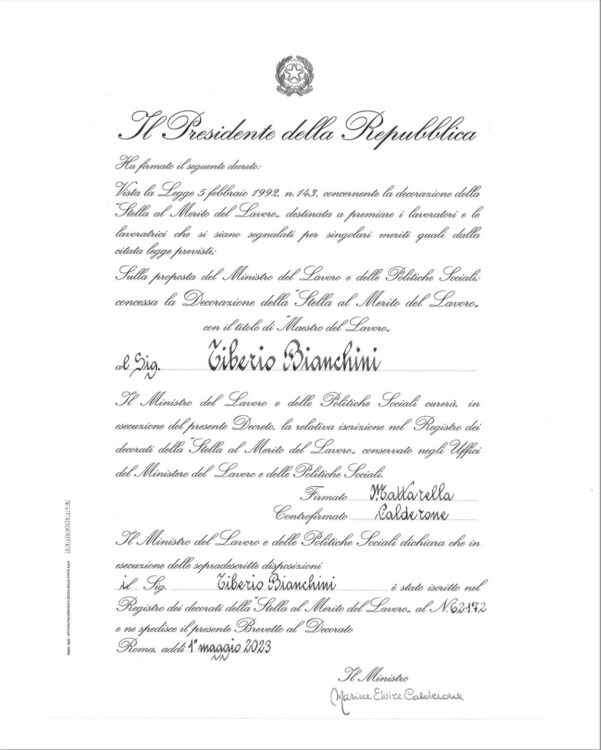 Il Presidente della Repubblica
Ha firmato il seguente decreto:
Vista la Legge 5 febbraio 1992, n. 143, concernente la decorazione della
"Stella al Merito del Lavoro„ destinata a premiare i lavoratori e le
lavoratrici che si siano segnalati per singolari meriti quali dalla
citata legge previsti;
Sulla proposta del Ministro del Lavoro e delle Politiche Sociali;
concessa la Decorazione della "Stella al Merito del Lavoro„
con il titolo di "Maestro del Lavoro„
al Sig. Tiberio Bianchini
Il Ministro del Lavoro e delle Politiche Sociali curerà, in
esecuzione del presente Decreto, la relativa iscrizione nel Registro dei
decorati della "Stella al Merito del Lavoro„ conservato negli Uffici
del Ministero del Lavoro e delle Politiche Sociali.
Firmato Mattarella
Controfirmato Calderone
Il Ministro del Lavoro e delle Politiche Sociali dichiara che in
esecuzione delle sopradescritte disposizioni
il Sig. Tiberio Bianchini è stato iscritto nel
Registro dei decorati della "Stella al Merito del Lavoro„ al N 62172
e ne spedisce il presente Brevetto al Decorato
Roma, addì 1° maggio 2023
Il Ministro
Marina Elvira Calderone